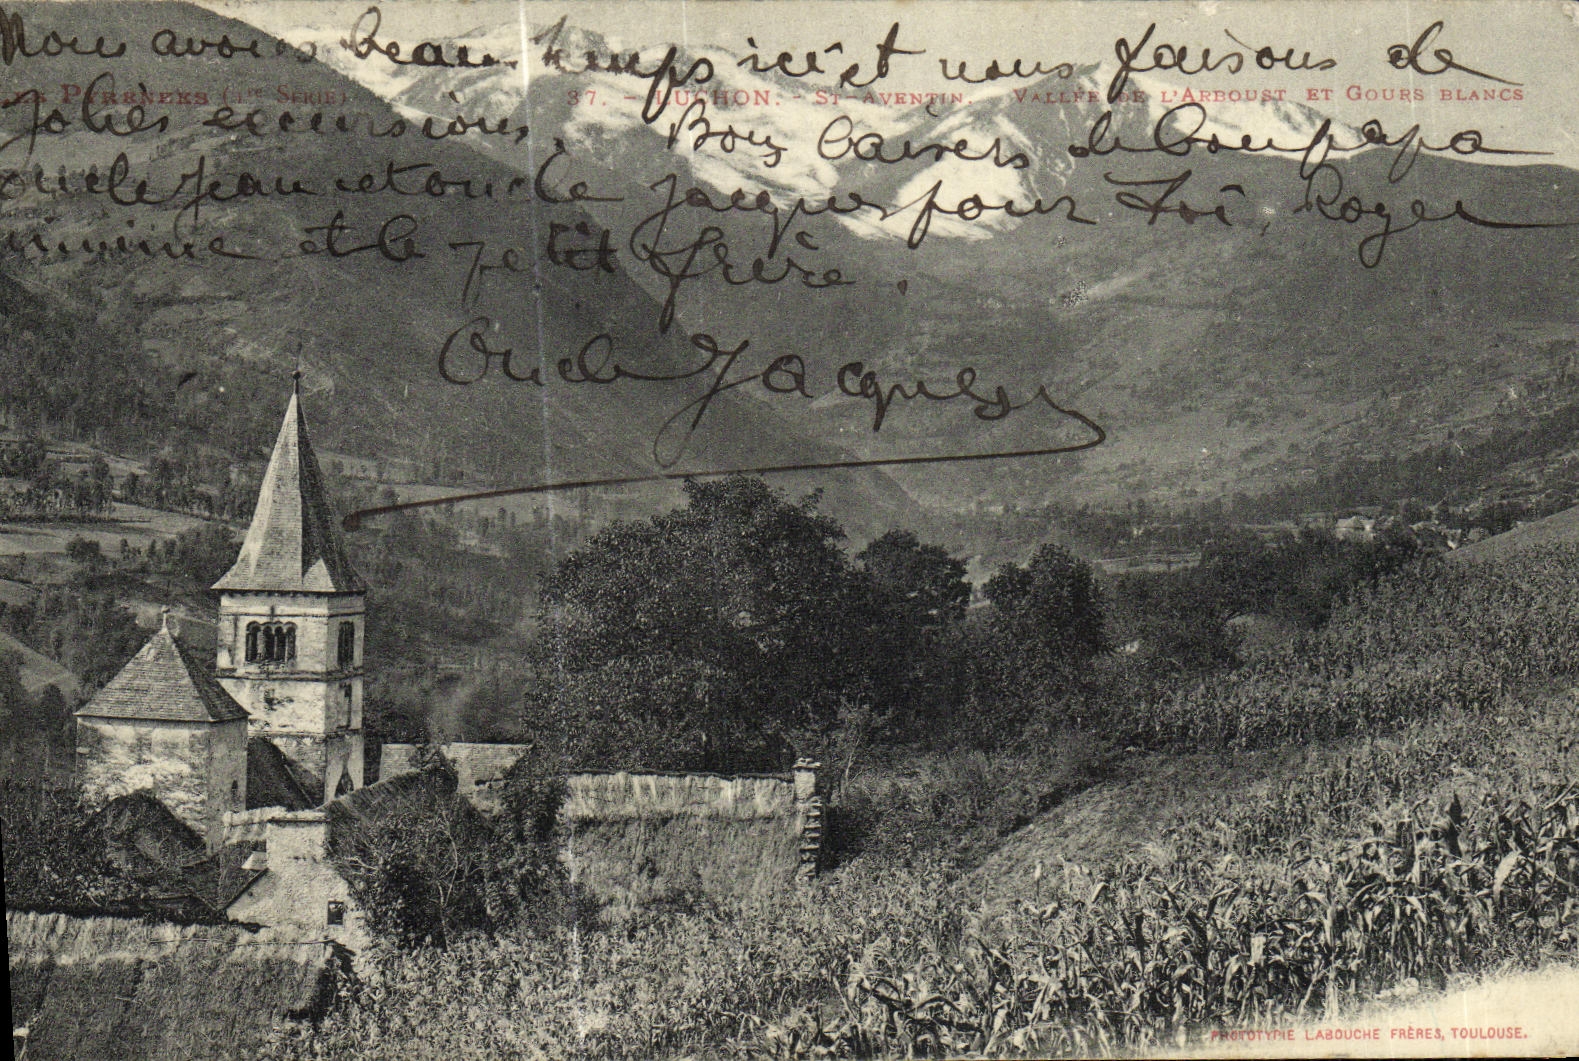 Nous avons beau temps ici et nous faisons de
LES PYRÉNÉES (1re Série) 37. - LUCHON. - St-AVENTIN. - VALLÉE DE L'ARBOUST ET GOURS BLANCS
Jolies excursions. Bons baisers de bon papa
oncle Jean et oncle Jacques pour Toi, Roger
et le petit frère.
Oncle Jacques
PHOTOTYPIE LABOUCHE FRÈRES, TOULOUSE.